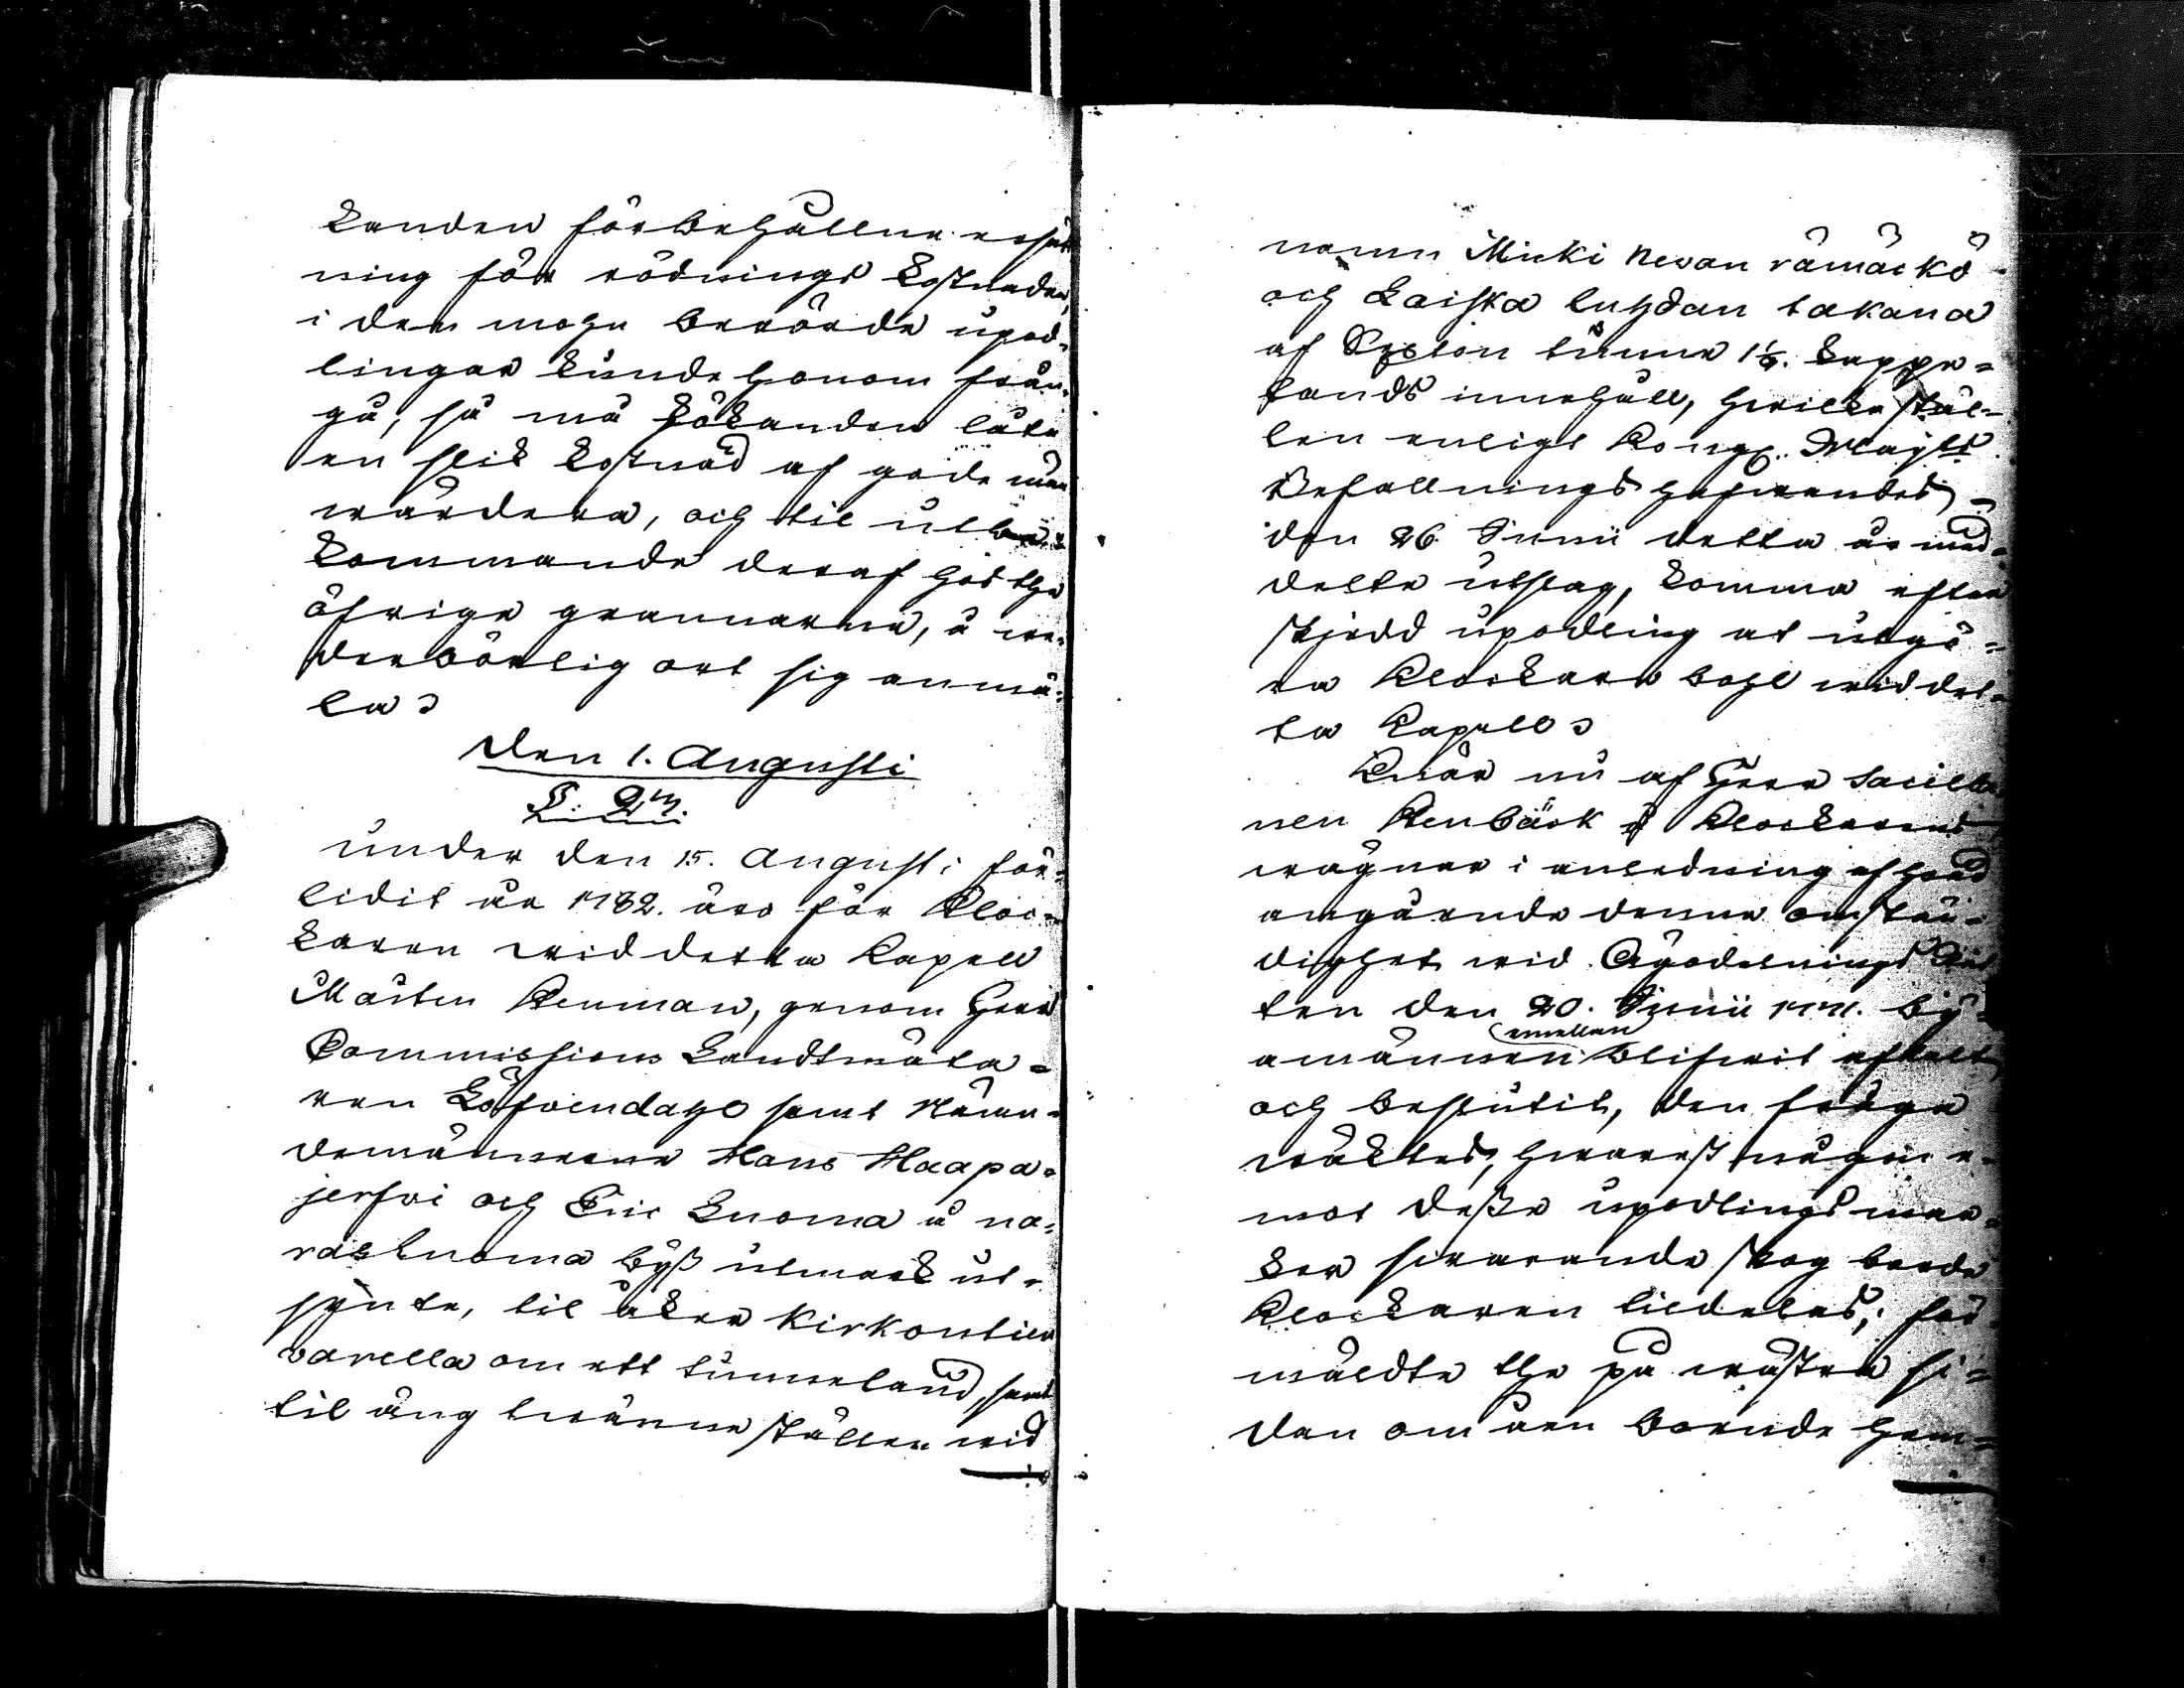 kanden förbehållne ersätt
ning för rödnings kostnaden,
i den mohn berörde upod-
lingar kunde honom från-
gå, så må sökanden låta
en slik kostnad af gode män
wärdera, och til utbe-
kommande deraf hos the
öfrige grannarne, å we-
derbörlig ort sig anmä-
la
Den 1. Augusti
S. 2m.
Under den 15. Augusti för-
lidit år 1782. äro för Kloc-
karen wid detta Kapell
Mårten Renman, genom Herr
Commissions Landtmäta-
ren Löfvendahl samt Nämn-
demännerne Hans Haapa-
jerfvi och Eric Luoma å na-
rasluoma Byß utmark ut-
synte, til åker Kirkontien
varella om ett tunneland, samt
til äng twänne ställen wid
namn Micki nevan rämäckö
och Laiska luhdan takana
af Sexton tunne 1 1/2. kappe-
lands innehåll, hwilka stäl-
len enligt Kongl. Maijts
Befallningshafwandes
den 26. Junii detta år med-
delte utslag, komma efter
skjedd upodling at utgö-
ra Klockare bohl wid det-
ta Kapell
Enär nu af Herr Sacella
nen Renbäck å Klockarens
wägnar i anledning af hwad
angående denna omstän-
dighet wid Ägodelnings Rät
ten den 20. Junii 1771. by-
amännen emellan blifwit aftalt
och beslutit, den fråga
wäktes, hwarest någon e-
mot deße upodlings mar-
ker swarande skog borde
Klockaren tildelas; för
mäldte the på wästra si-
dan om åen boende Hem-